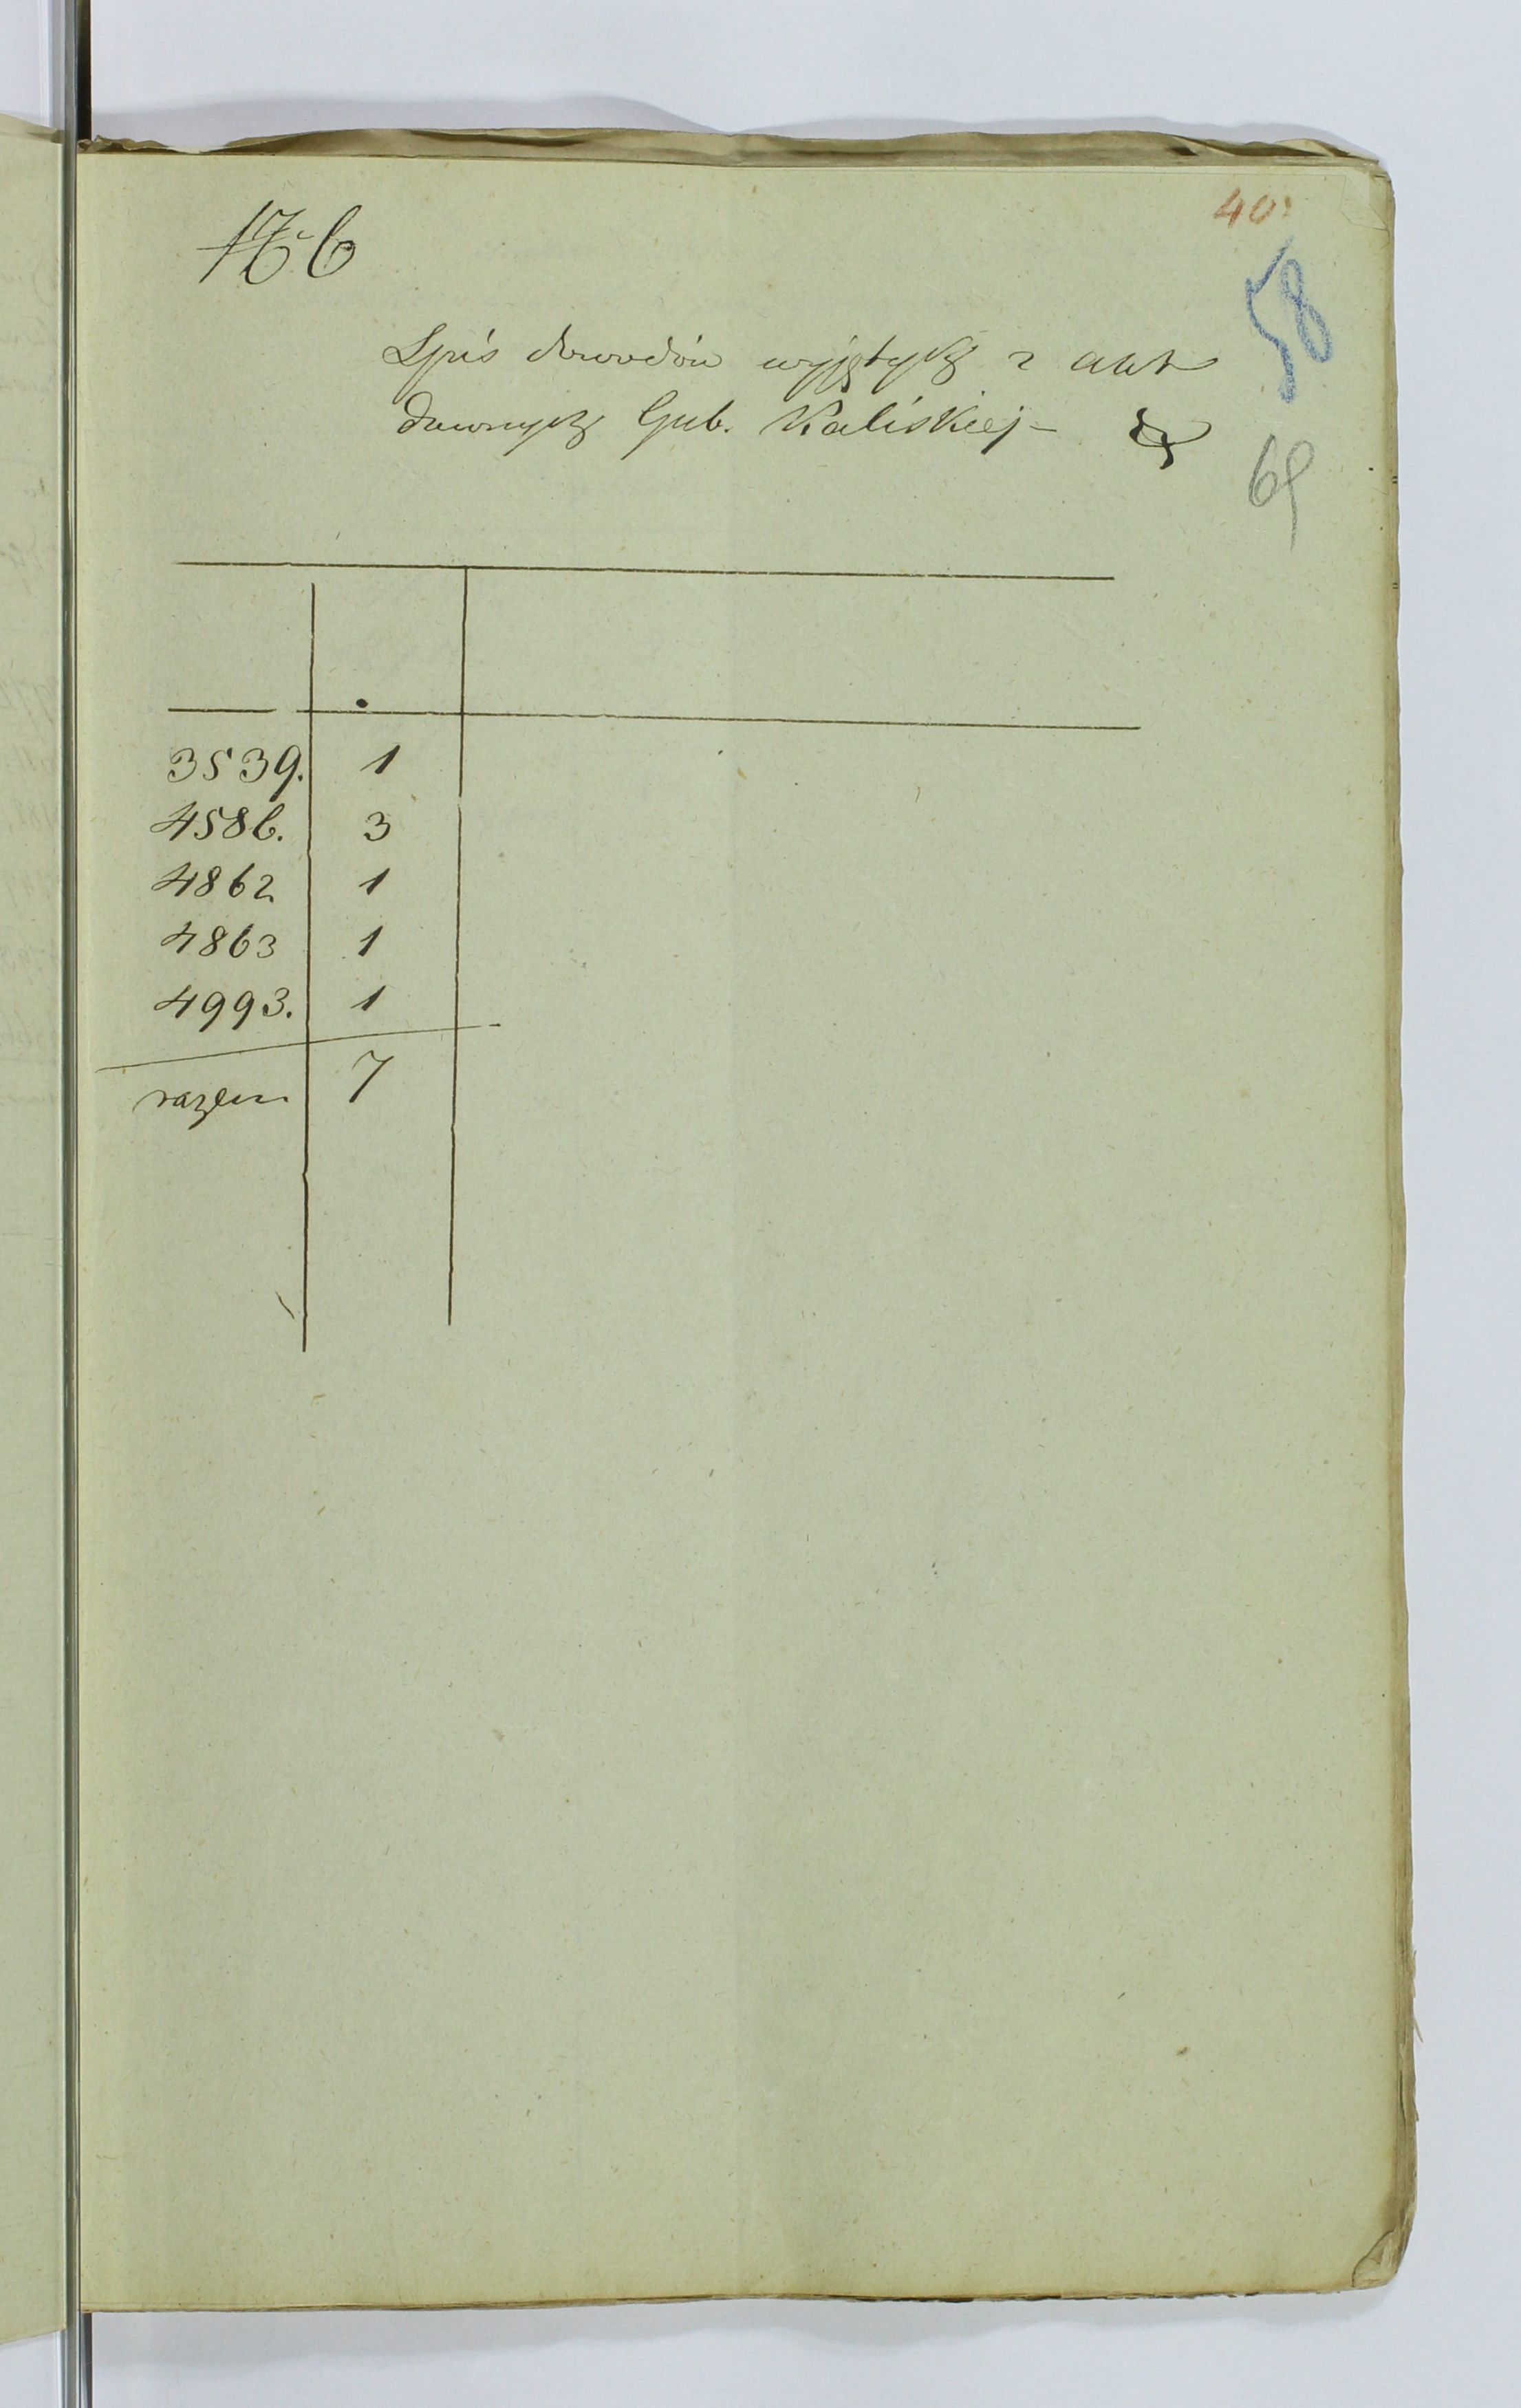 40
58
69
Spis dowodów wyjętych z akt
dawnych Gub. Kaliskiej
3539. 1
4586. 3
4862 1
4863 1
4993. 1
razem 7